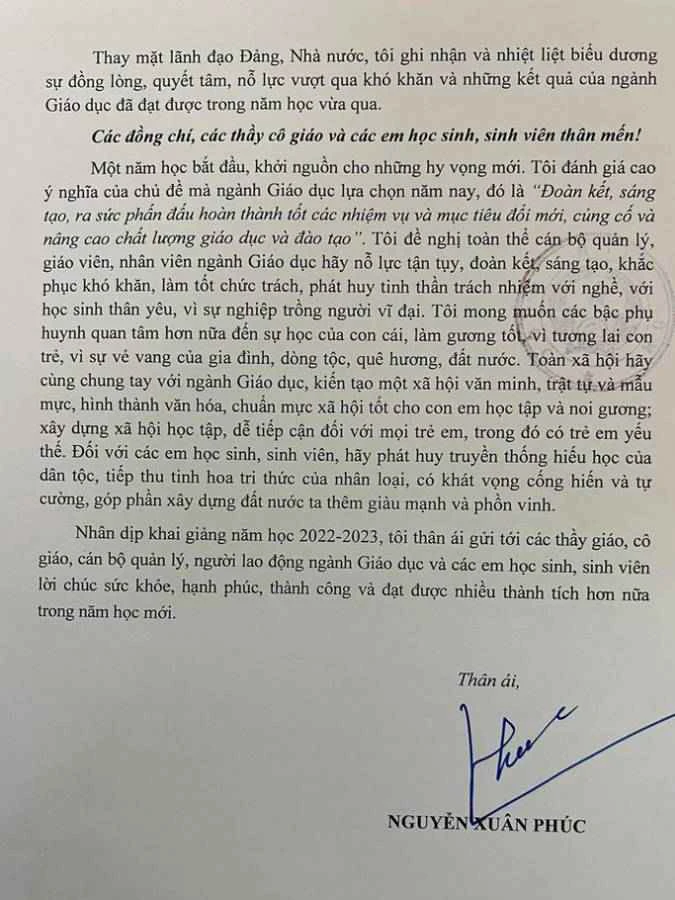 Thay mặt lãnh đạo Đảng, Nhà nước, tôi ghi nhận và nhiệt liệt biểu dương
sự đồng lòng, quyết tâm, nỗ lực vượt qua khó khăn và những kết quả của ngành
Giáo dục đã đạt được trong năm học vừa qua.
Các đồng chí, các thầy cô giáo và các em học sinh, sinh viên thân mến!
Một năm học bắt đầu, khởi nguồn cho những hy vọng mới. Tôi đánh giá cao
ý nghĩa của chủ đề mà ngành Giáo dục lựa chọn năm nay, đó là “Đoàn kết, sáng
tạo, ra sức phấn đấu hoàn thành tốt các nhiệm vụ và mục tiêu đổi mới, củng cố và
nâng cao chất lượng giáo dục và đào tạo”. Tôi đề nghị toàn thể cán bộ quản lý,
giáo viên, nhân viên ngành Giáo dục hãy nỗ lực tận tụy, đoàn kết, sáng tạo, khắc
phục khó khăn, làm tốt chức trách, phát huy tinh thần trách nhiệm với nghề, với
học sinh thân yêu, vì sự nghiệp trồng người vĩ đại. Tôi mong muốn các bậc phụ
huynh quan tâm hơn nữa đến sự học của con cái, làm gương tốt, vì tương lai con
trẻ, vì sự vẻ vang của gia đình, dòng tộc, quê hương, đất nước. Toàn xã hội hãy
cùng chung tay với ngành Giáo dục, kiến tạo một xã hội văn minh, trật tự và mẫu
mực, hình thành văn hóa, chuẩn mực xã hội tốt cho con em học tập và noi gương;
xây dựng xã hội học tập, dễ tiếp cận đối với mọi trẻ em, trong đó có trẻ em yếu
thế. Đối với các em học sinh, sinh viên, hãy phát huy truyền thống hiếu học của
dân tộc, tiếp thu tinh hoa tri thức của nhân loại, có khát vọng cống hiến và tự
cường, góp phần xây dựng đất nước ta thêm giàu mạnh và phồn vinh.
Nhân dịp khai giảng năm học 2022-2023, tôi thân ái gửi tới các thầy giáo, cô
giáo, cán bộ quản lý, người lao động ngành Giáo dục và các em học sinh, sinh viên
lời chúc sức khỏe, hạnh phúc, thành công và đạt được nhiều thành tích hơn nữa
trong năm học mới.
Thân ái,
NGUYỄN XUÂN PHÚC